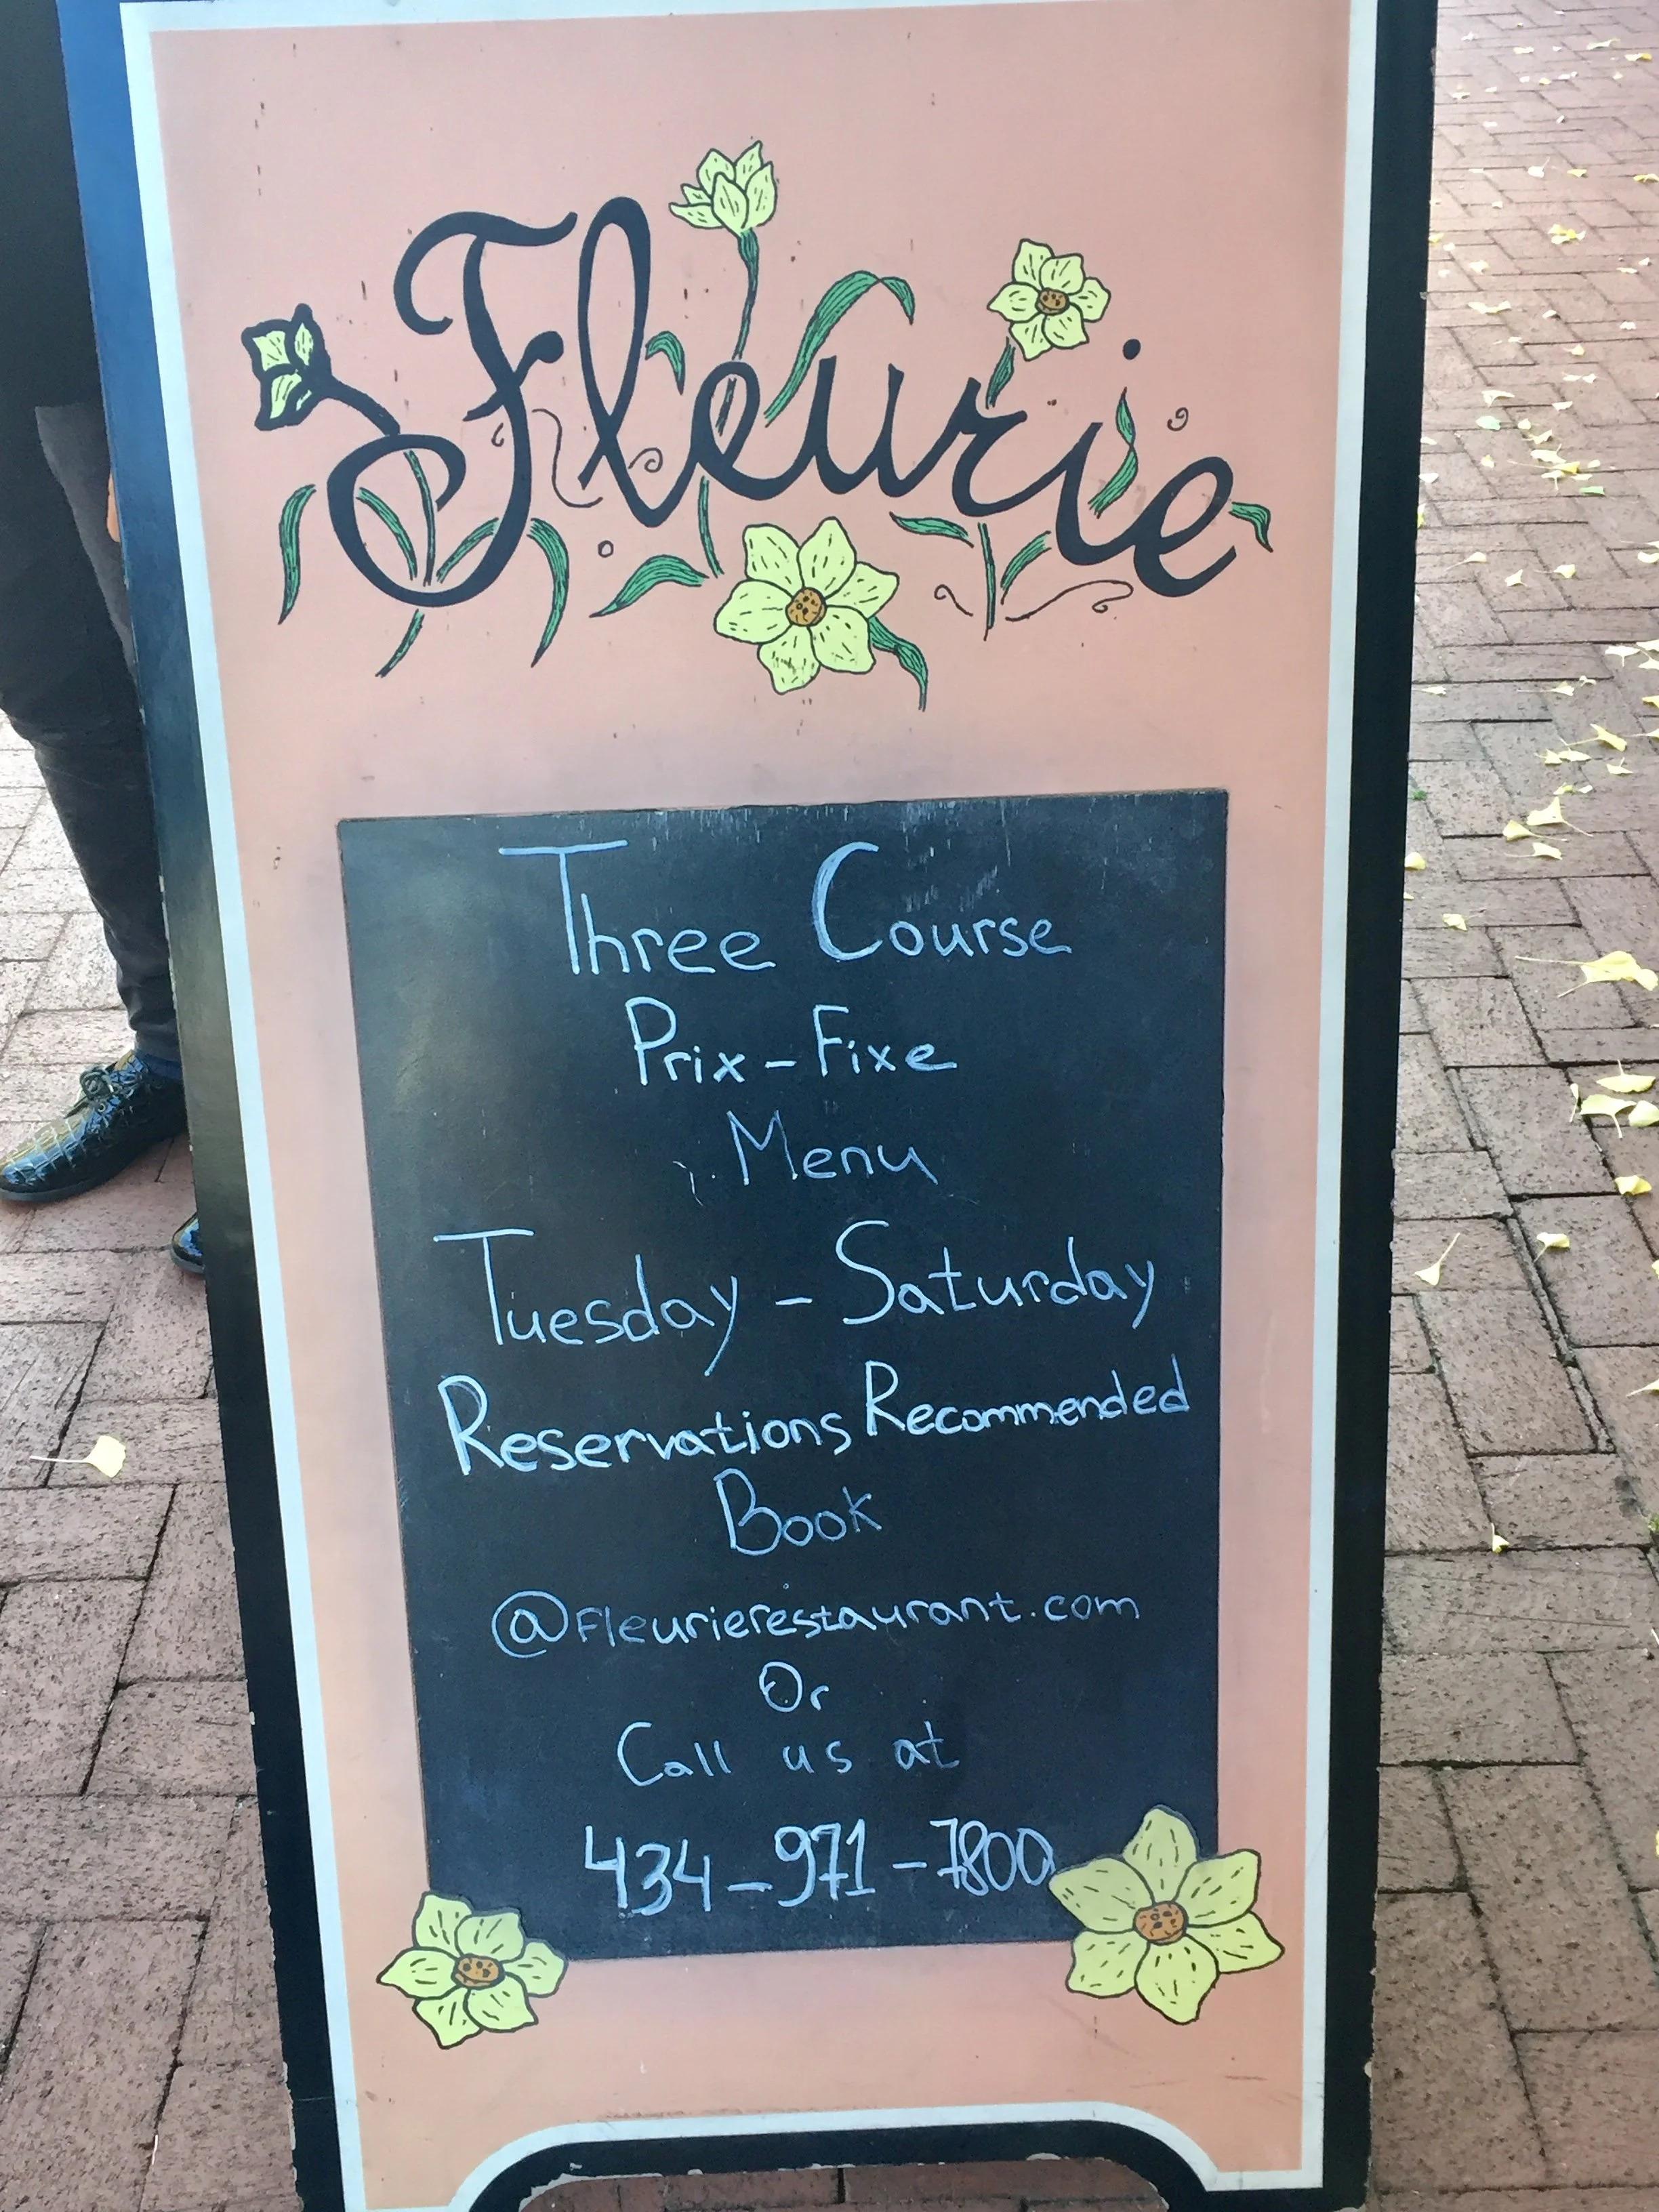 Fleurie
Three Course
Prix-Fixe
Menu
Tuesday - Saturday
Reservations Recommended
Book
@fleurierestaurant.com
Or
Call us at
434-971-7800